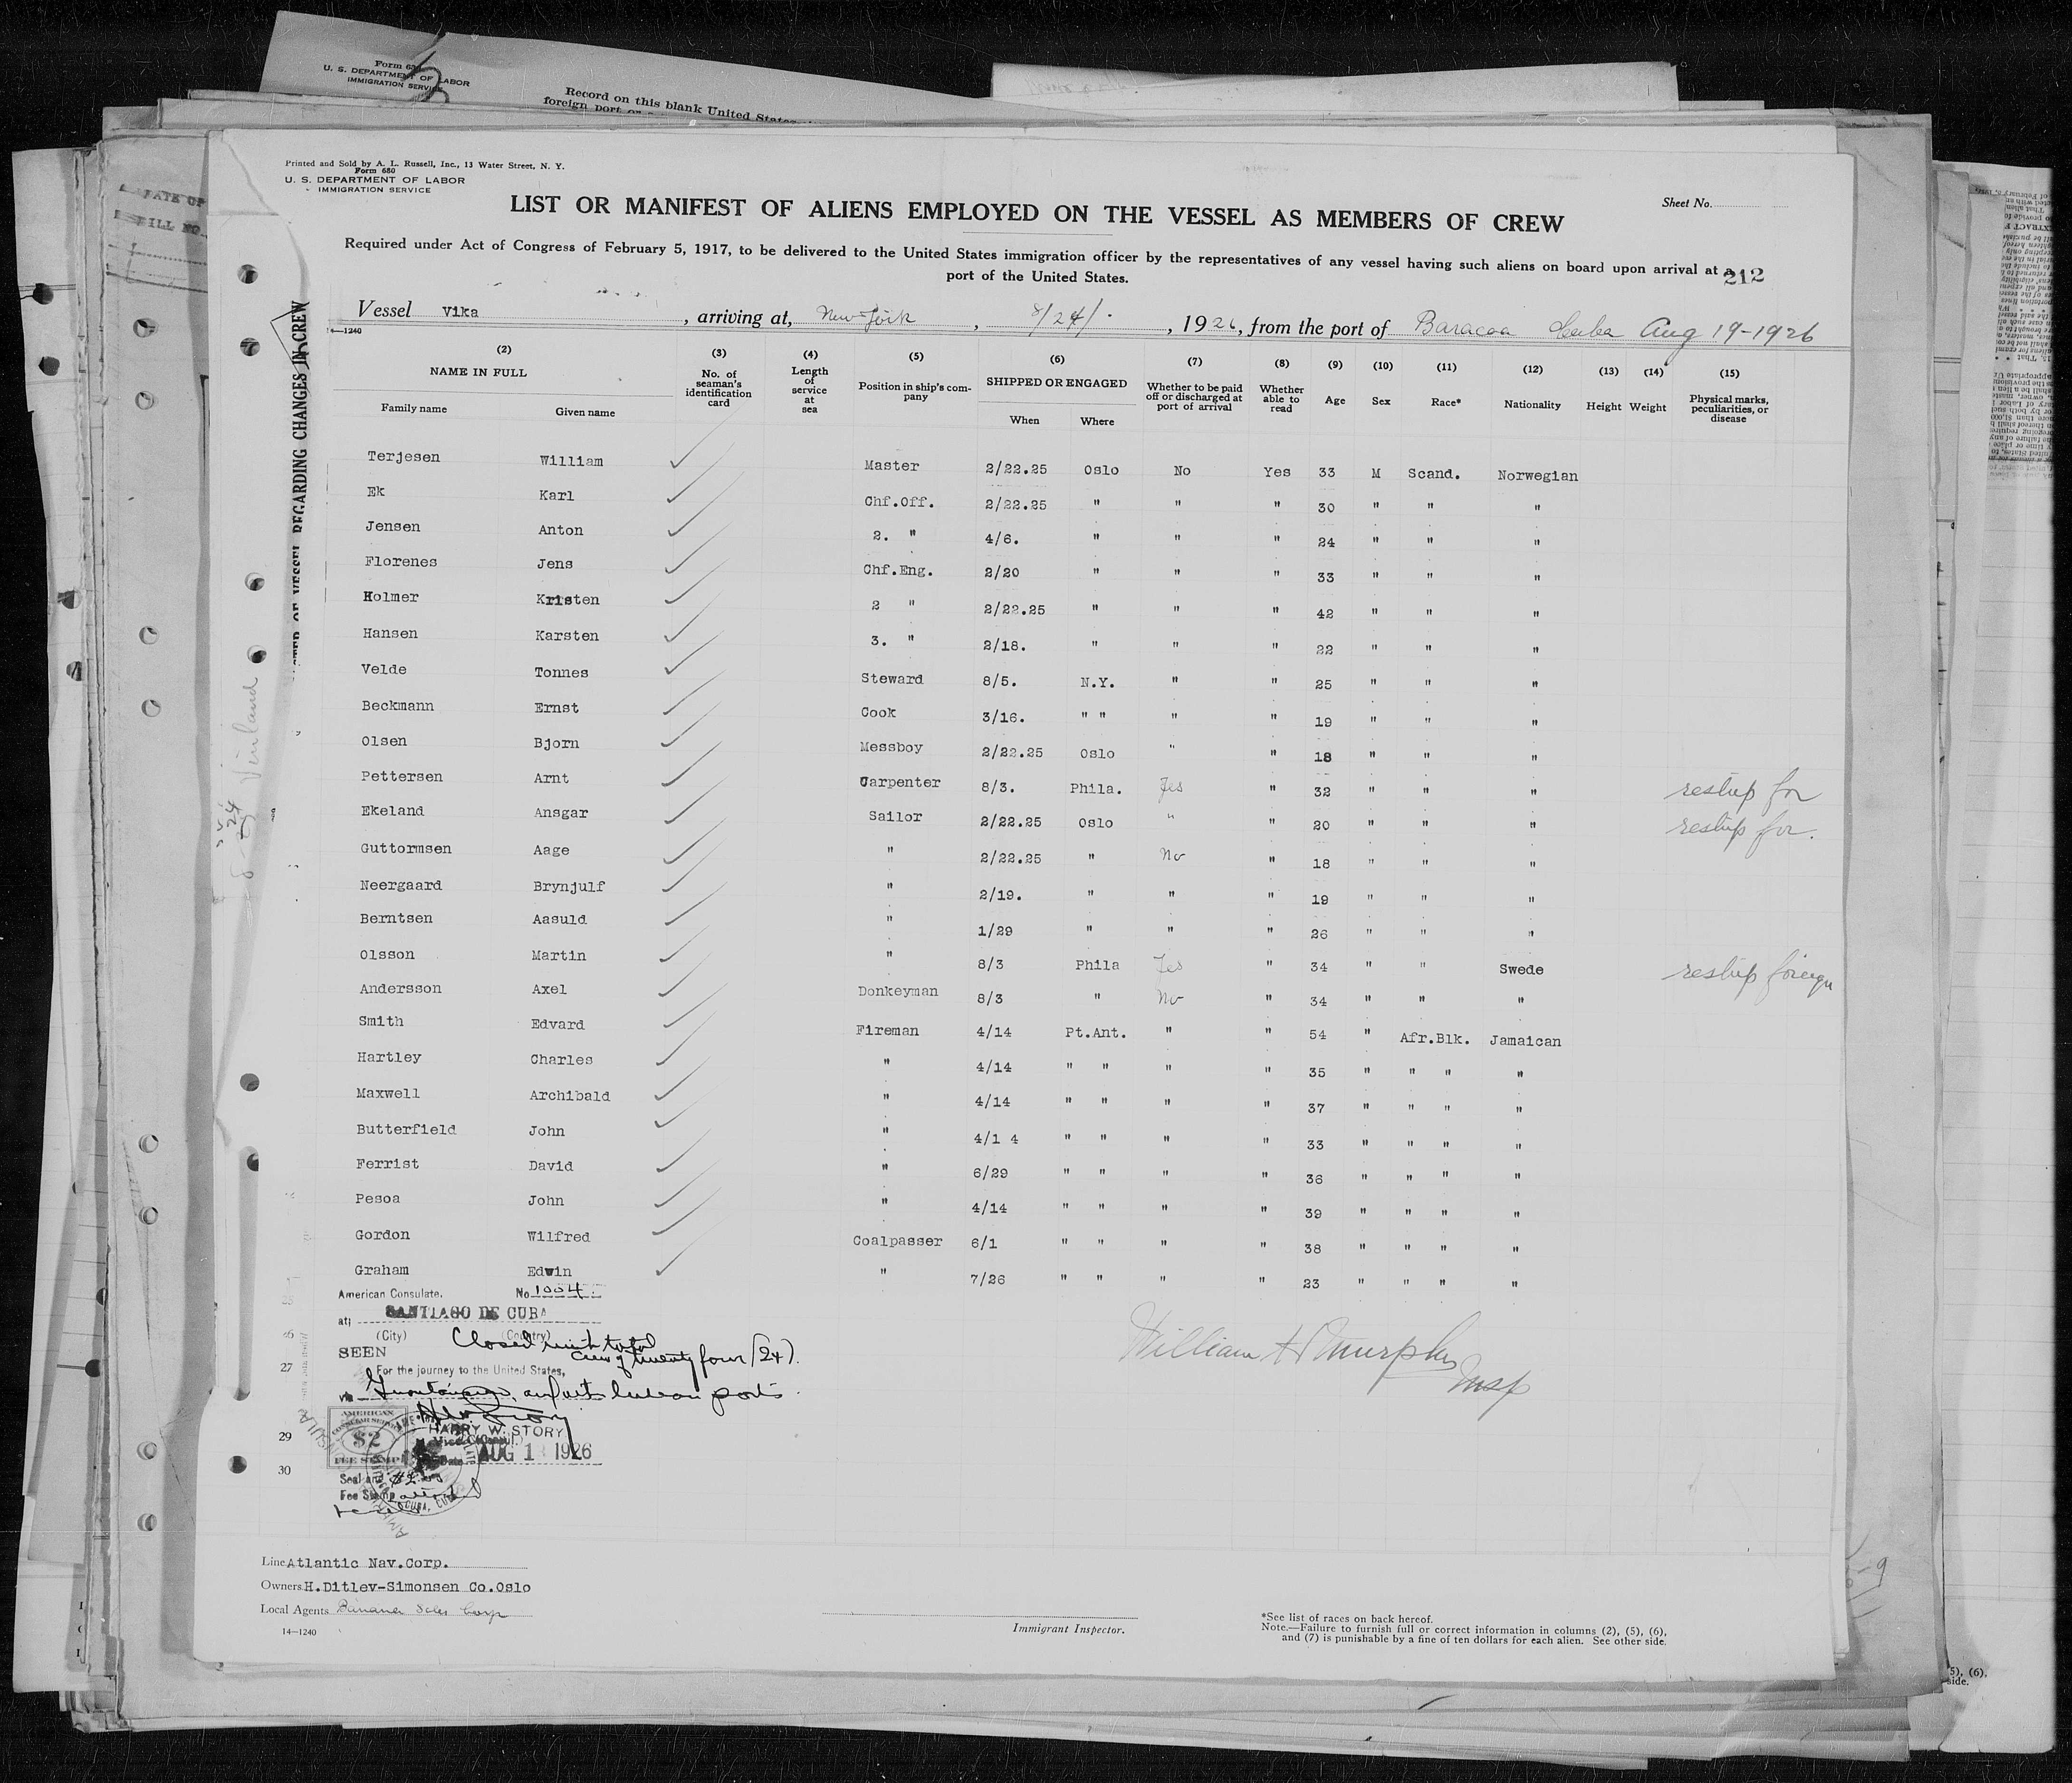 Form 680
U. S. DEPARTMENT OF LABOR
IMMIGRATION SERVICE
Record on this blank United States
foreign port or
Printed and Sold by A. L. Russell, Inc., 13 Water Street, N. Y.
Form 680
U. S. DEPARTMENT OF LABOR
IMMIGRATION SERVICE
Sheet No.
LIST OR MANIFEST OF ALIENS EMPLOYED ON THE VESSEL AS MEMBERS OF CREW
Required under Act of Congress of February 5, 1917, to be delivered to the United States immigration officer by the representatives of any vessel having such aliens on board upon arrival at a
port of the United States.
212
Vessel Vika, arriving at, New York, 8/24/, 1926, from the port of Baracoa Cuba Aug 19-1926
14—1240
(2) (3) (4) (5) (6) (7) (8) (9) (10) (11) (12) (13) (14) (15)
NAME IN FULL
Family name Given name
No. of seaman's identification card
Length of service at sea
Position in ship's company
SHIPPED OR ENGAGED
When Where
Whether to be paid off or discharged at port of arrival
Whether able to read
Age Sex Race* Nationality Height Weight
Physical marks, peculiarities, or disease
Terjesen William Master 2/22.25 Oslo No Yes 33 M Scand. Norwegian
Ek Karl Chf.Off. 2/22.25 " " " 30 " " "
Jensen Anton 2. " 4/6. " " " 24 " " "
Florenes Jens Chf.Eng. 2/20 " " " 33 " " "
Holmer Kristen 2 " 2/22.25 " " " 42 " " "
Hansen Karsten 3. " 2/18. " " " 22 " " "
Velde Tonnes Steward 8/5. N.Y. " " 25 " " "
Beckmann Ernst Cook 3/16. " " " " 19 " " "
Olsen Bjorn Messboy 2/22.25 Oslo " " 18 " " "
Pettersen Arnt Carpenter 8/3. Phila. Yes " 32 " " " reship for
Ekeland Ansgar Sailor 2/22.25 Oslo " " 20 " " " reship for.
Guttormsen Aage " 2/22.25 " No " 18 " " "
Neergaard Brynjulf " 2/19. " " " 19 " " "
Berntsen Aasuld " 1/29 " " " 26 " " "
Olsson Martin " 8/3 Phila Yes " 34 " " Swede reship foreign
Andersson Axel Donkeyman 8/3 " No " 34 " " "
Smith Edvard Fireman 4/14 Pt.Ant. " " 54 " Afr.Blk. Jamaican
Hartley Charles " 4/14 " " " " 35 " " " "
Maxwell Archibald " 4/14 " " " " 37 " " " "
Butterfield John " 4/1 4 " " " " 33 " " " "
Ferrist David " 6/29 " " " " 36 " " " "
Pesoa John " 4/14 " " " " 39 " " " "
Gordon Wilfred Coalpasser 6/1 " " " " 38 " " " "
Graham Edwin " 7/26 " " " " 23 " " " "
American Consulate. No 1004
at; SANTIAGO DE CUBA
(City) (Country)
26
Closed with total
crew of twenty four (24).
SEEN
27
For the journey to the United States,
via Guantanamo, and
ports
William H Murphy
Insp
AMERICAN
CONSULAR SERVICE
$2
FEE STAMP
HARRY W. STORY
Vice Consul
29
Date AUG 1 1926
30
Seal and
Fee Stamp
CUBA, CUBA
Line Atlantic Nav.Corp.
Owners H.Ditlev-Simonsen Co.Oslo
Local Agents Banana Sales Corp
14—1240
Immigrant Inspector.
*See list of races on back hereof.
Note.—Failure to furnish full or correct information in columns (2), (5), (6),
and (7) is punishable by a fine of ten dollars for each alien. See other side.
REGARDING CHANGES IN CREW
Vinland
5), (6),
side.